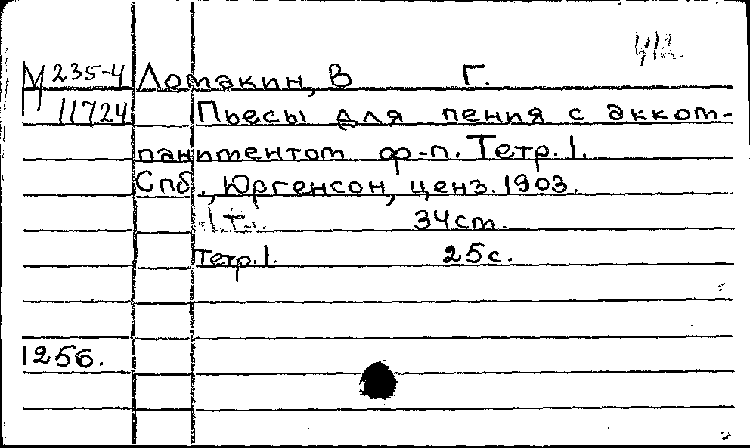 М 235-4 Ломакин, В Г.
П 11724 Пьесы для пения с акком-
паниментом ф-п. Тетр. 1.
Спб., Юргенсон, ценз. 1903.
34см.
Тетр. 1. 25с.
1256.